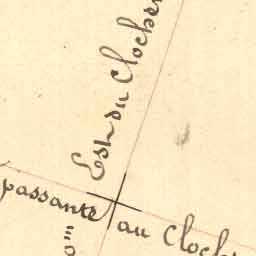 Est du Clocher
passante au Cloch
om